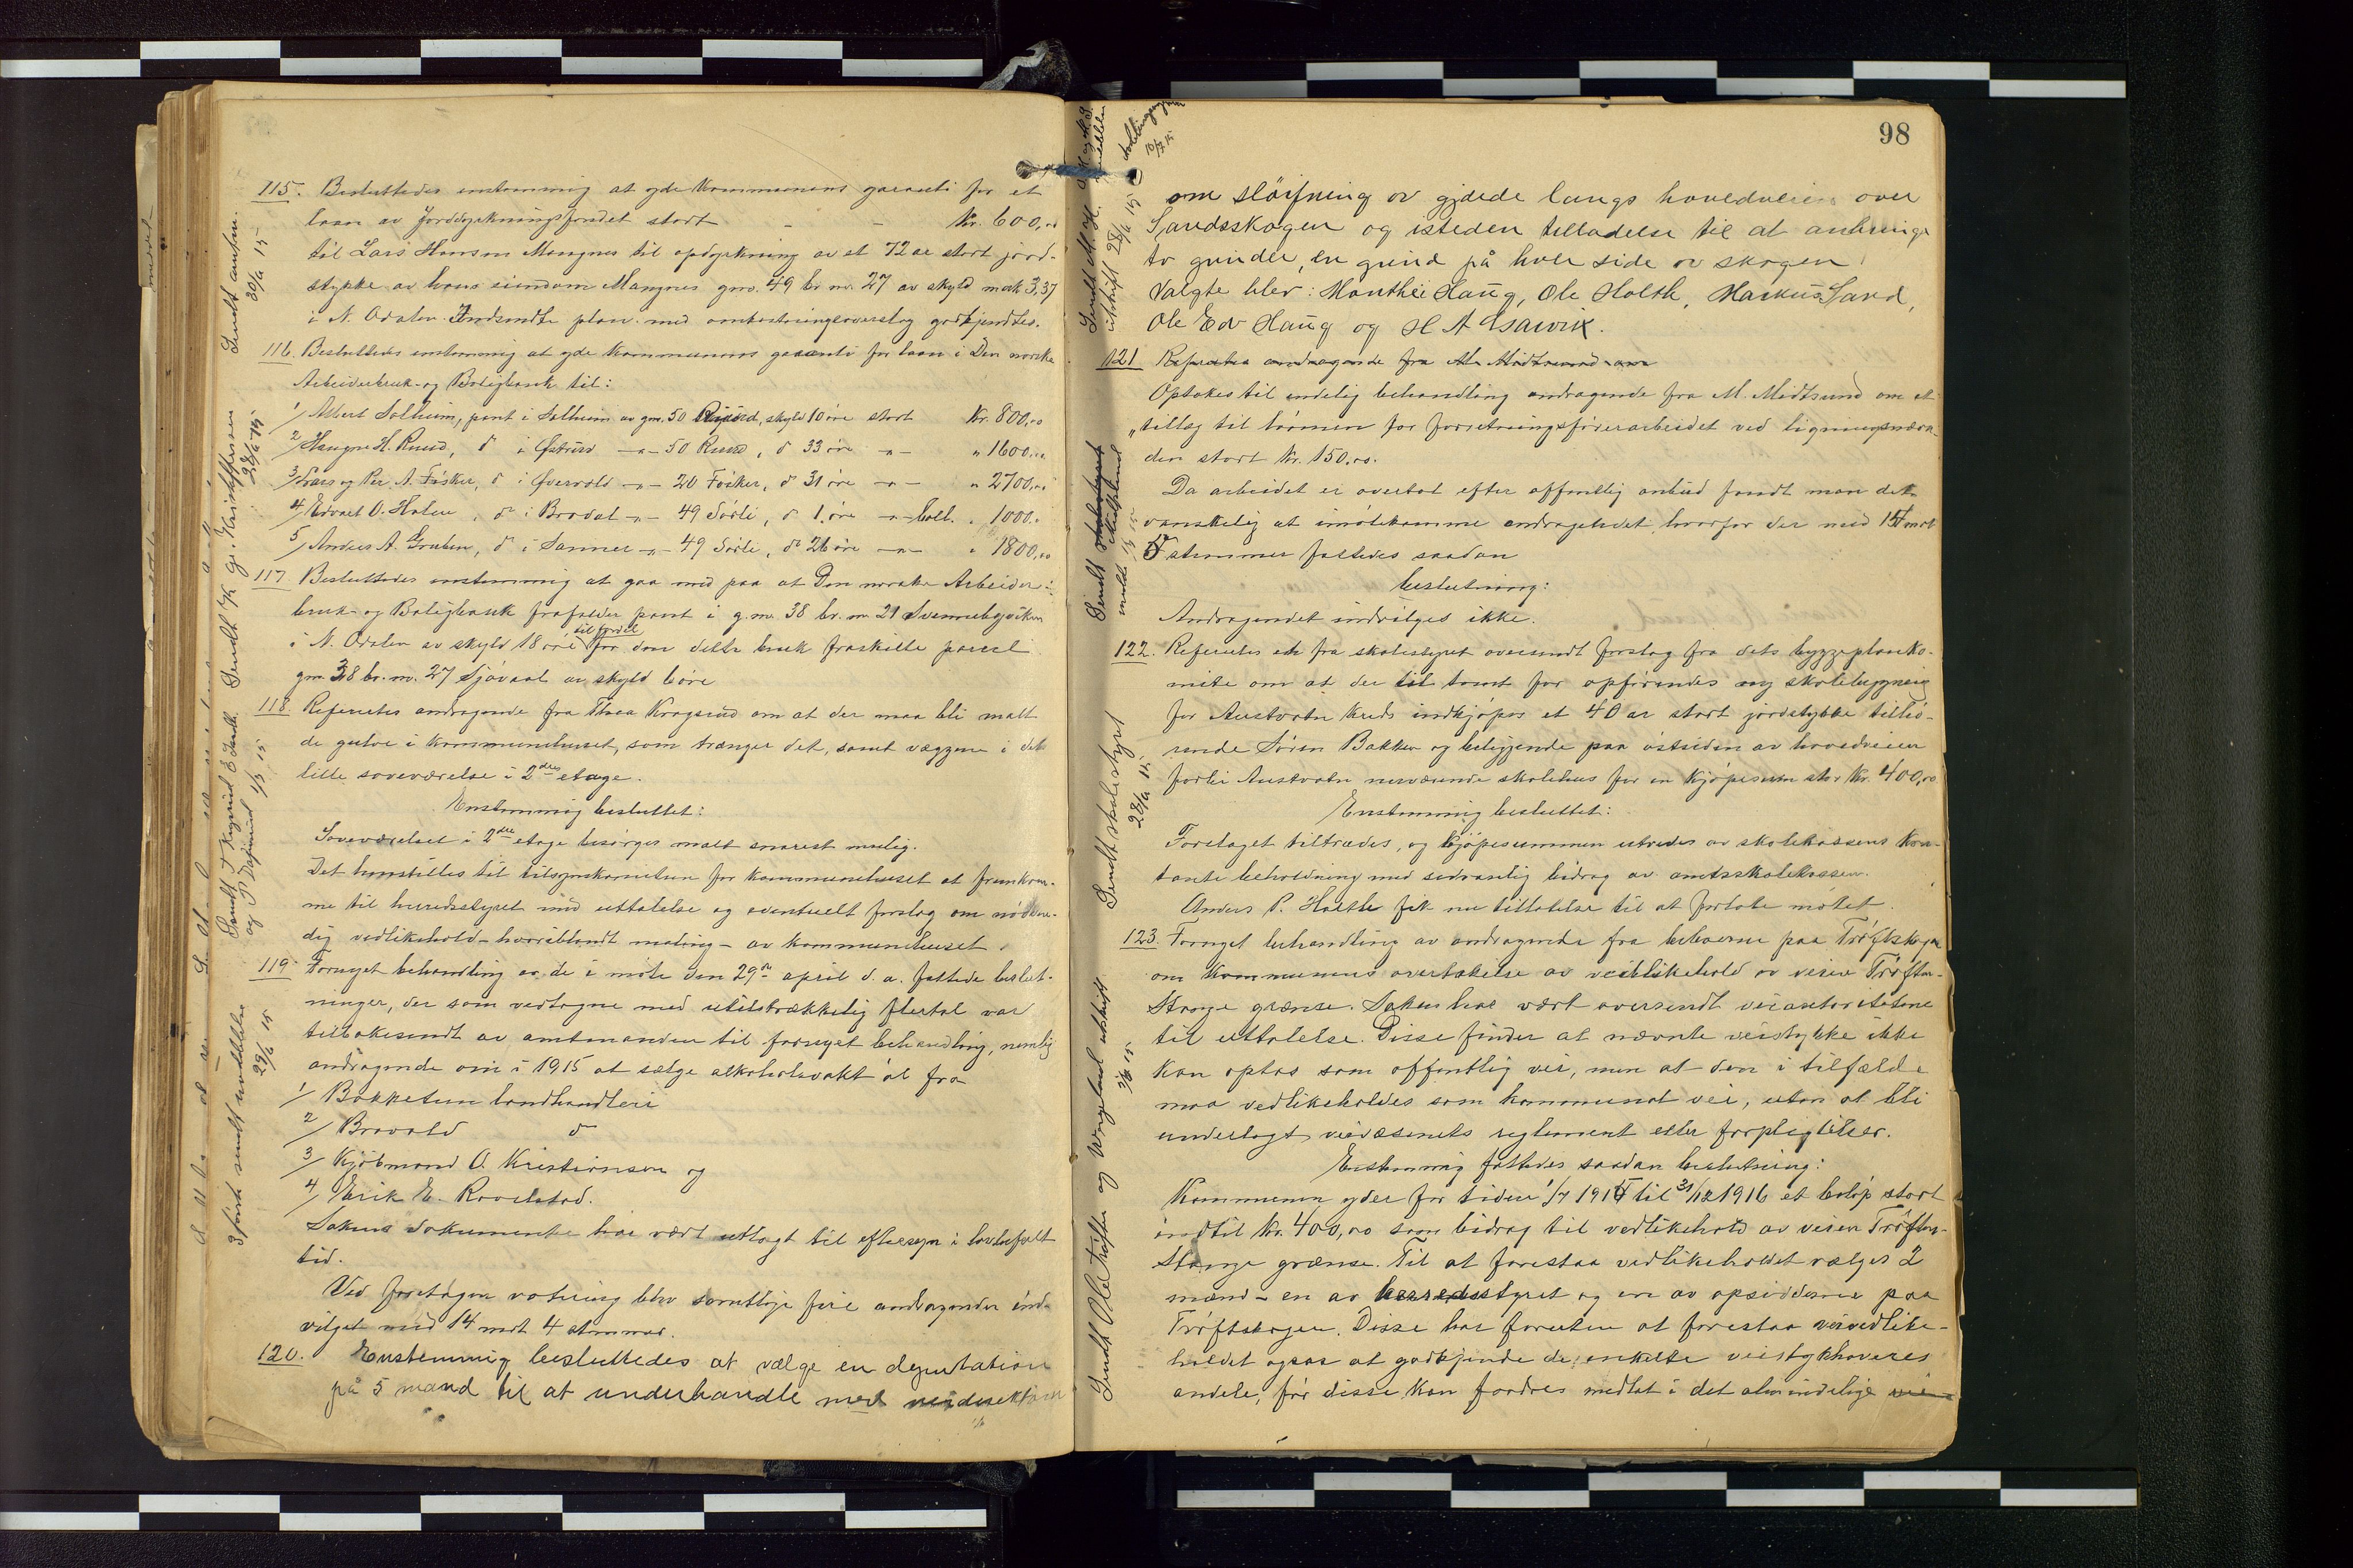 115. Besluttedes enstemmig at yde kommunens garanti for et
laan av Jorddyrkningsfondet stort - - Kr. 600,00
til Lars Hansen Mangnes til opdyrkning av et 72 ar stort jord-
stykke av hans eiendom Mangnes gnr. 49 br. nr. 27 av skyld mark 3,37
i N. Odalen. Indsendte plan med omkostningsoverslag godkjendtes.
116. Besluttedes enstemmig at yde kommunens garanti for laan i Den norske
Arbeiderbruk- og Boligbank til:
1/ Albert Solheim, pant i Solheim av gnr. 50 Ruud, skyld 10 øre stort Kr. 800,00
2/ Haagen H. Ruud, do i Østrud -"- 50 Ruud, do 33 øre -"- " 1600,00
3/ Lars og Per A. Fosker, do i Øvervold -"- 20 Fosker, do 31 øre -"- " 2700,00
4/ Edvart O. Holen, do i Brodal -"- 49 Sörli, do 1 øre -"- " 1000,00
5/ Anders A. Gruben, do i Sanner -"- 49 Sörli, do 26 øre -"- " 1800,00
117. Besluttedes enstemmig at gaa med paa at Den norske Arbeider-
bruk- og Boligbank frafalder pant i g.nr. 38 br. nr. 21 Svennebyviken
i N. Odalen av skyld 18 øre til fordel for den dette bruk fraskilte parcel
gnr. 38 br. nr. 27 Sjøvaal av skyld 6 øre
118. Refereredes andragende fra Thea Krogsrud om at der maa bli malt
de gulve i kommunehuset, som trænger det, samt væggene i det
lille soveværelse i 2den etage.
Enstemmig besluttet:
Soveværelset i 2den etage besørges malt snarest mulig.
Det henstilles til tilsynskomiteen for kommunehuset at fremkom-
me til herredsstyret med uttalelse og eventuelt forslag om nødven-
dig vedlikehold - hvoriblandt maling - av kommunehuset.
119. Fornyet behandling av de i møte den 29de april d. a. fattede beslut-
ninger, der som vedtagne med utilstrækkelig flertal var
tilbakesendt av amtmanden til fornyet behandling, nemlig
andragende om i 1915 at sælge alkoholsvakt øl fra
1/ Bakketun landhandleri
2/ Bravold do
3/ Kjøbmand O. Kristiansen og
4/ Erik E. Rovelstad.
Sakens dokumenter har vært utlagt til eftersyn i lovbefalt
tid.
Ved foretagen votering blev samtlige fire andragender ind-
vilget med 14 mot 4 stemmer.
120. Enstemmig besluttedes at vælge en deputation
på 5 mand til at underhandle med veidirektøren
98
om sløifning av gjærde langs hovedveien over
Sandsskogen og isteden tilladelse til at anbringe
to grinder, en grind på hver side av skogen.
Valgte blev: Manthei Haug, Ole Holth, Markus Sand,
Ole Edv Haug og H A Gsarvik.
121. Refereredes andragende fra M. Midtsund om
Optokes til endelig behandling andragende fra M. Midtsund om et
tillæg til lönnen for forretningsförerarbeidet ved ligningsvæsen-
den stort kr. 150,00.
Da arbeidet er overtat efter offentlig anbud fandt man det
vanskelig at imötekomme andragendet, hvorfor der med 15 mot
stemmer fattedes saadan
beslutning:
Andragendet indvilges ikke.
122. Refereredes et fra skolestyret oversendt forslag fra dets byggeplanko-
mite om at der til tomt for opförendes ny skolebygning
for Austvatn kreds indkjöpes et 40 ar stort jordstykke tilhö-
rende Sören Bakken og beliggende paa östsiden av hovedveien
forbi Austvatn nuværende skolehus for en kjöpesum stor kr. 400,00
Enstemmig besluttet:
Forslaget tiltrædes, og kjöpesummen utredes av skolekassens kon-
tante beholdning med sedvanlig bidrag av amtsskolekassen.
Anders P. Holth fik nu tillatelse til at forlate mötet.
123. Fornyet behandling av andragende fra beboerne paa Tröftskogen
om kommunens overtakelse av veivedlikehold av veien Tröften-
Stange grænse. Saken har vært oversendt veiautoritetene
til uttalelse. Disse finder at nævnte veistykke ikke
kan optas som offentlig vei, men at den i tilfælde
maa vedlikeholdes som kommunal vei, uten at bli
underlagt veivæsenets reglement eller forpligtelser.
Enstemmig fattedes saadan beslutning:
Kommunen yder for tiden 1/7 1915 til 31/12 1916 et belöp stort
indtil kr. 400,00 som bidrag til vedlikehold av veien Tröften-
Stange grænse. Til at forestaa vedlikeholdet vælges 2
mænd - en av herredsstyret og en av opsidderne paa
Tröftskogen. Disse har foruten at forestaa veivedlike-
holdet ogsaa at godkjende de enkelte veistykhaveres
andele, för disse kan fordres medtat i det almindelige vei-
Sendt ansøk.
30/6 15
28/6 15
Sendt skolestyret
28/6 15
29/6 15